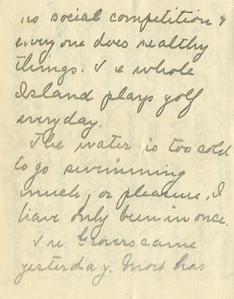 no social competition &
everyone does healthy
things. The whole
Island plays golf
everyday.
The water is too cold
to go swimming
much, or pleasure, I
have only been in once.
The Grovers came
yesterday. Most has